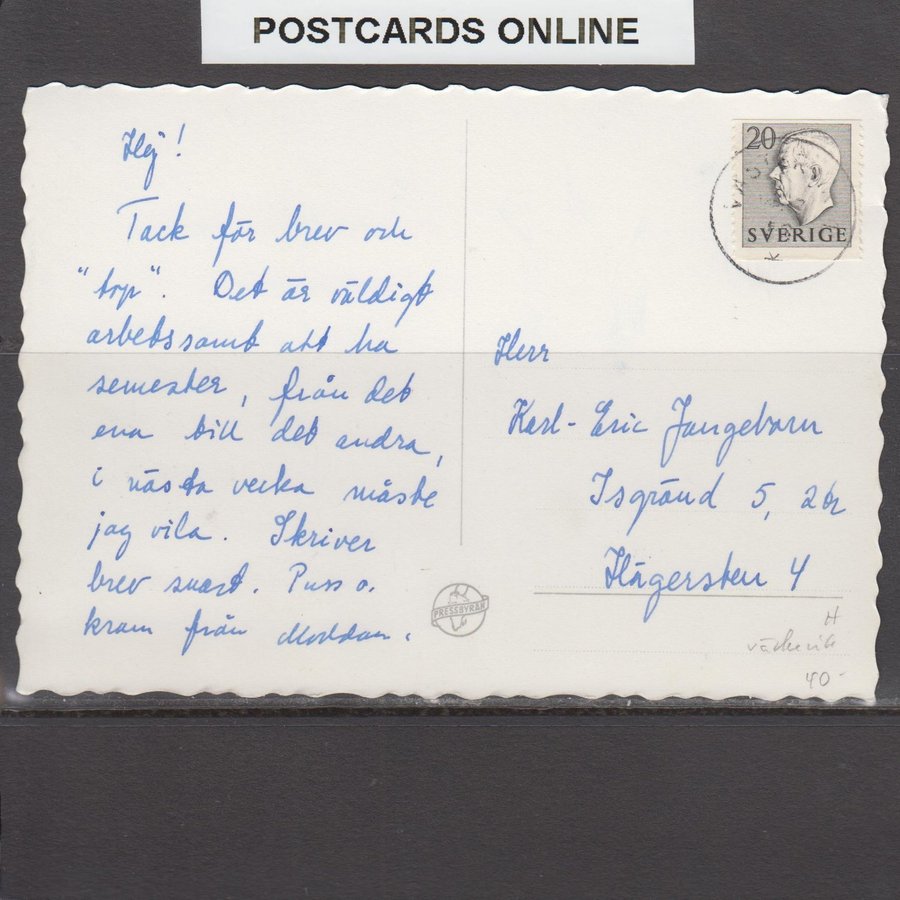 POSTCARDS ONLINE
20
SVERIGE
Hej!
Tack för brev och
"top". Det är väldigt
arbetssamt att ha
semester, från det
ena till det andra,
i nästa vecka måste
jag vila. Skriver
brev snart. Puss o.
kram från Moddan.
Herr
Karl-Eric Jungebarn
Isgränd 5, 2 tr
Hägersten 4
PRESSBYRÅN
H
40-